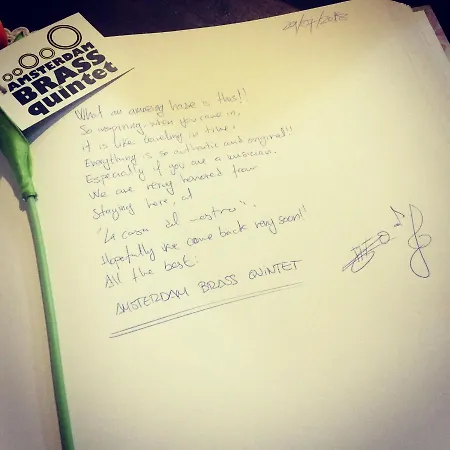 AMSTERDAM
BRASS
quintet
29/07/2018
What an amazing house is this!!
So inspiring, when you come in,
it is like traveling in time.
Everything is so authentic and original!!
Especially if you are a musician.
We are very honored from
Staying here, at
"La casa del maestro".
Hopefully we come back very soon!!
All the best:
AMSTERDAM BRASS QUINTET